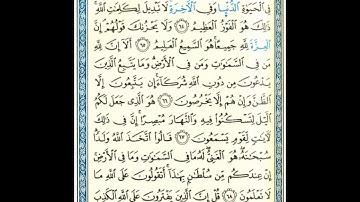 فِي الْحَيَوٰةِ الدُّنْيَا وَفِي الْآخِرَةِ لَا تَبْدِيلَ لِكَلِمَٰتِ اللَّهِ
ذَٰلِكَ هُوَ الْفَوْزُ الْعَظِيمُ ٦٤ وَلَا يَحْزُنكَ قَوْلُهُمْ إِنَّ
الْعِزَّةَ لِلَّهِ جَمِيعًا هُوَ السَّمِيعُ الْعَلِيمُ ٦٥ أَلَا إِنَّ لِلَّهِ
مَن فِي السَّمَٰوَٰتِ وَمَن فِي الْأَرْضِ وَمَا يَتَّبِعُ الَّذِينَ
يَدْعُونَ مِن دُونِ اللَّهِ شُرَكَاءَ إِن يَتَّبِعُونَ إِلَّا
الظَّنَّ وَإِنْ هُمْ إِلَّا يَخْرُصُونَ ٦٦ هُوَ الَّذِي جَعَلَ لَكُمُ
الَّيْلَ لِتَسْكُنُوا فِيهِ وَالنَّهَارَ مُبْصِرًا إِنَّ فِي ذَٰلِكَ
لَآيَٰتٍ لِّقَوْمٍ يَسْمَعُونَ ٦٧ قَالُوا اتَّخَذَ اللَّهُ وَلَدًا
سُبْحَٰنَهُ هُوَ الْغَنِيُّ لَهُ مَا فِي السَّمَٰوَٰتِ وَمَا فِي الْأَرْضِ
إِنْ عِندَكُم مِّن سُلْطَٰنٍ بِهَٰذَا أَتَقُولُونَ عَلَى اللَّهِ مَا
لَا تَعْلَمُونَ ٦٨ قُلْ إِنَّ الَّذِينَ يَفْتَرُونَ عَلَى اللَّهِ الْكَذِبَ